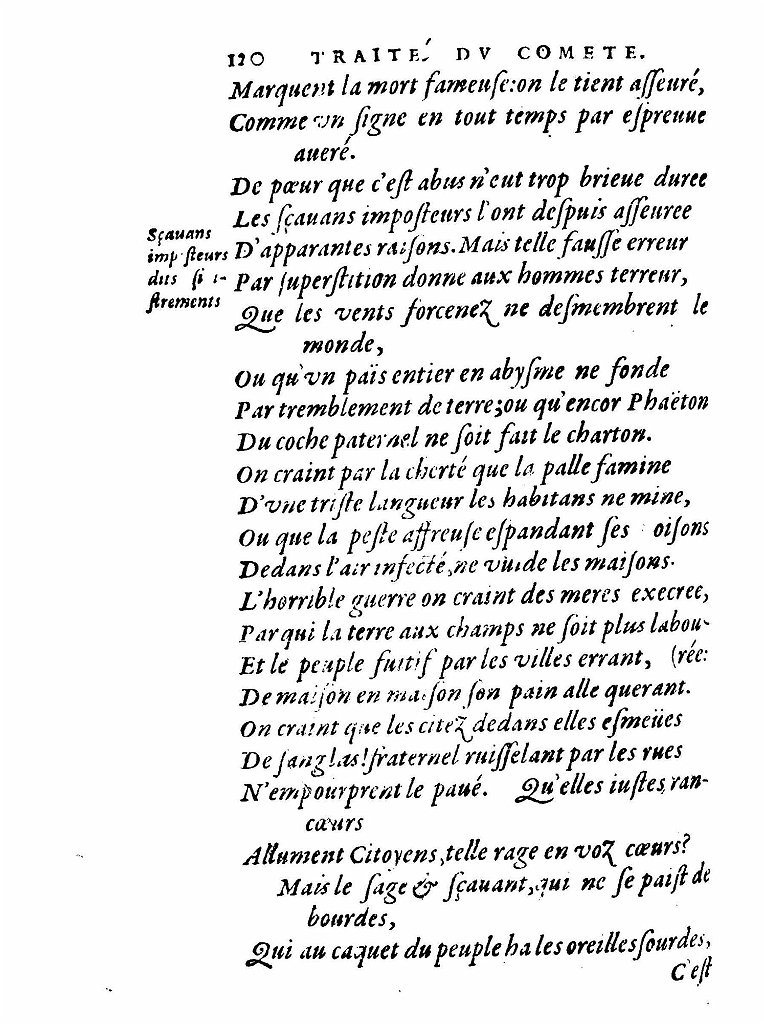 120 TRAITÉ DV COMETE.
Marquent la mort fameuſe: on le tient aſſeuré,
Comme vn ſigne en tout temps par eſpreuue
aueré.
De pœur que c'eſt abus n'eut trop brieue duree
Les ſçauans impoſteurs l'ont deſpuis aſſeuree
Sçauans
impoſteurs
dus ſi
ſtrements
D'apparantes raiſons. Mais telle fauſſe erreur
Par ſuperſtition donne aux hommes terreur,
Que les vents forcenez ne deſmembrent le
monde,
Ou qu'vn païs entier en abyſme ne fonde
Par tremblement de terre; ou qu'encor Phaëton
Du coche paternel ne ſoit fait le charton.
On craint par la cherté que la palle famine
D'vne triſte langueur les habitans ne mine,
Ou que la peſte affreuſe eſpandant ſes oiſons
Dedans l'air infecté, ne vuide les maiſons.
L'horrible guerre on craint des meres execree,
Par qui la terre aux champs ne ſoit plus labou-
Et le peuple fuitif par les villes errant, (rée:
De maiſon en maiſon ſon pain alle querant.
On craint que les citez dedans elles eſmeües
De ſang las! fraternel ruiſſelant par les rues
N'empourprent le paué. Qu'elles iuſtes ran-
cœurs
Allument Citoyens, telle rage en voz cœurs?
Mais le ſage & ſçauant, qui ne ſe paiſt de
bourdes,
Qui au caquet du peuple ha les oreilles ſourdes,
C'eſt